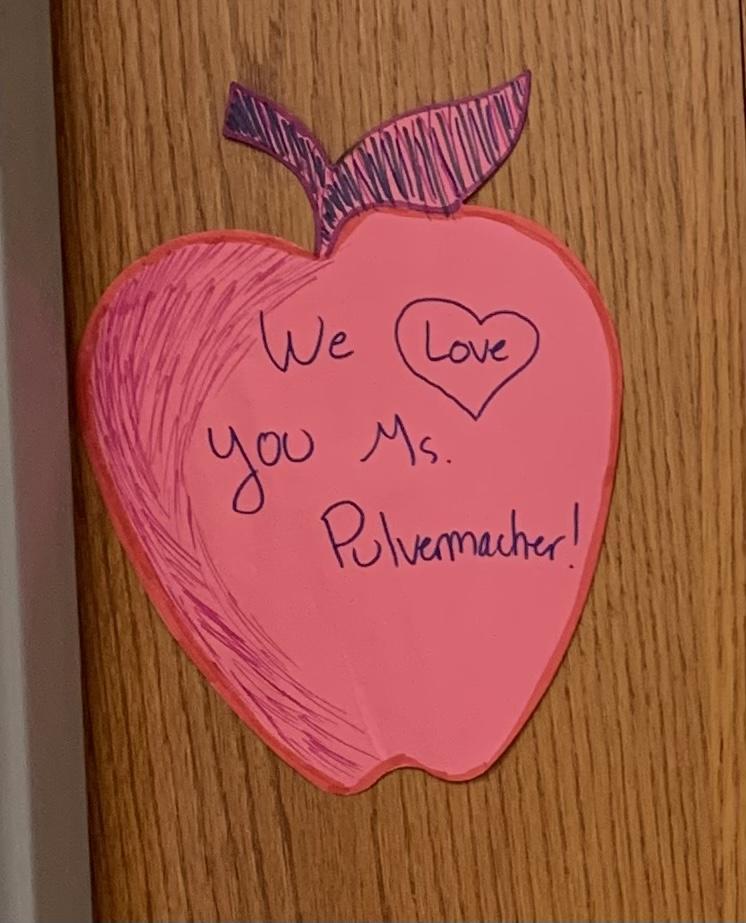 We Love
you Ms.
Pulvermacher!